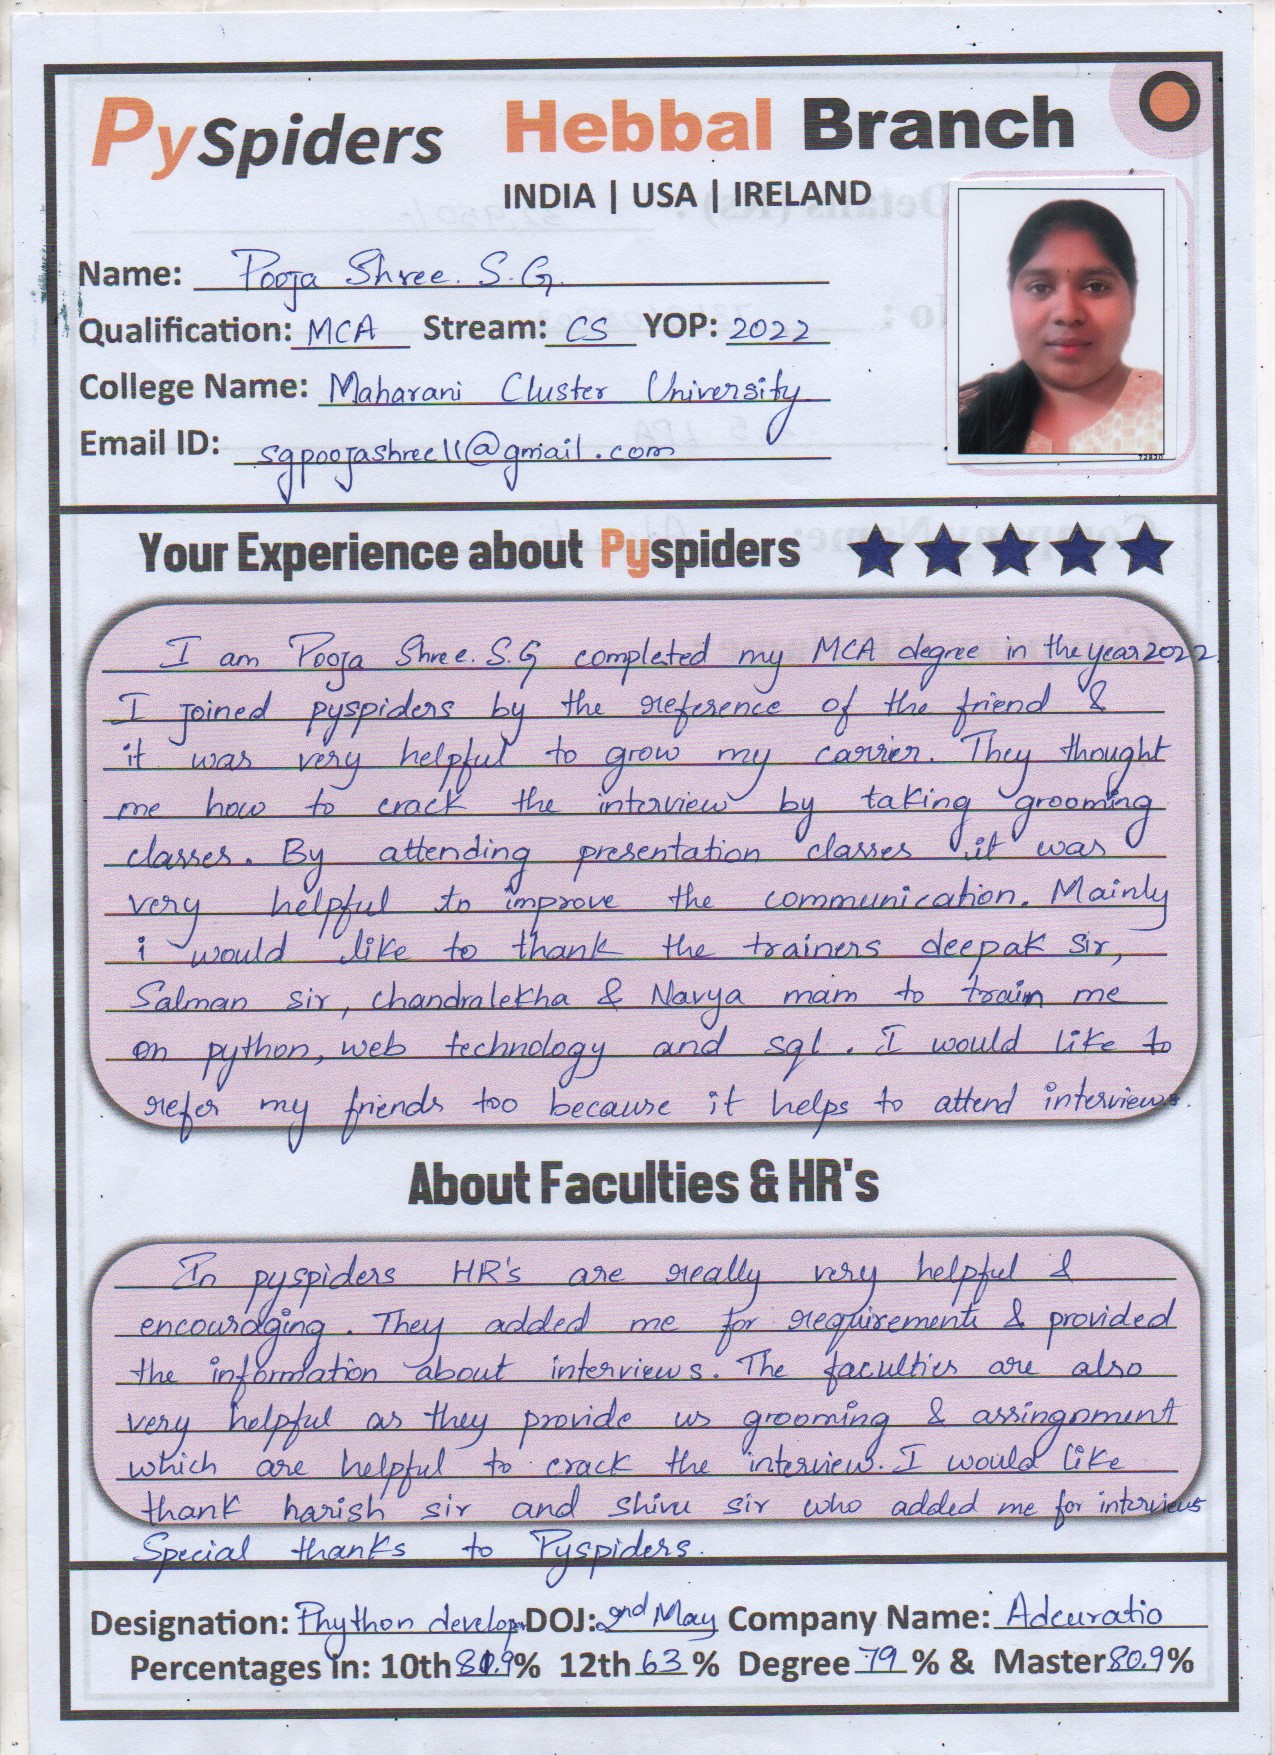 PySpiders Hebbal Branch
INDIA | USA | IRELAND
Name: Pooja Shree. S.G.
Qualification: MCA Stream: CS YOP: 2022
College Name: Maharani Cluster University
Email ID: sgpoojashree11@gmail.com
72820
Your Experience about Pyspiders
I am Pooja Shree. S.G completed my MCA degree in the year 2022.
I joined pyspiders by the reference of the friend &
it was very helpful to grow my carrier. They thought
me how to crack the interview by taking grooming
classes. By attending presentation classes it was
very helpful to improve the communication. Mainly
i would like to thank the trainers deepak sir,
Salman sir, chandralekha & Navya mam to train me
on python, web technology and sql. I would like to
refer my friends too because it helps to attend interviews.
About Faculties & HR's
In pyspiders HR's are really very helpful &
encouraging. They added me for requirements & provided
the information about interviews. The faculties are also
very helpful as they provide us grooming & assingnment
which are helpful to crack the interview. I would like
thank harish sir and shivu sir who added me for interviews
Special thanks to Pyspiders.
Designation: Phython developer DOJ: 2nd May Company Name: Adcuratio
Percentages in: 10th 81.9% 12th 63 % Degree 79 % & Master 80.9%